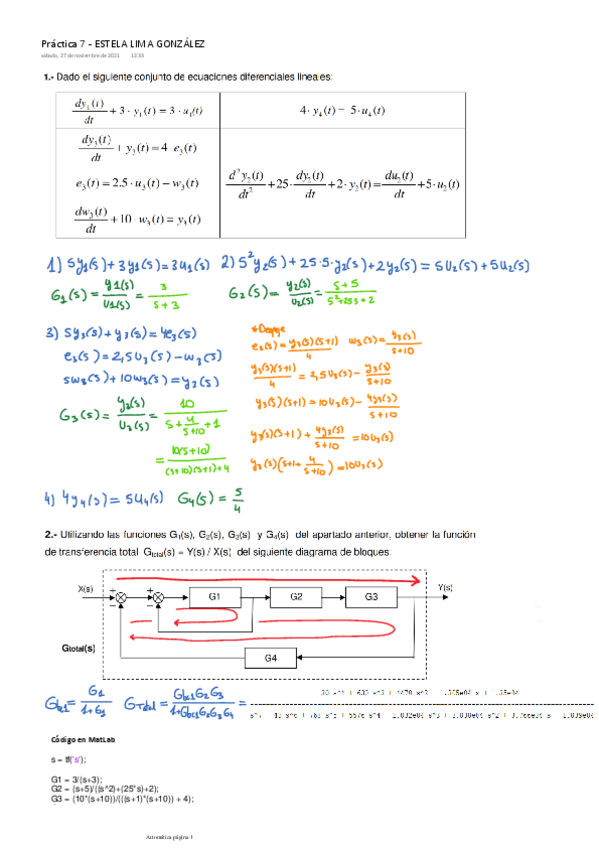 Práctica 7 - ESTELA LIMA GONZÁLEZ
sábado, 27 de noviembre de 2021 12:33
1.- Dado el siguiente conjunto de ecuaciones diferenciales lineales:
dy₁(t)/dt + 3 · y₁(t) = 3 · u₁(t)
4 · y₄(t) = 5 · u₄(t)
dy₃(t)/dt + y₃(t) = 4 e₃(t)
e₃(t) = 2.5 · u₃(t) − w₃(t)
dw₃(t)/dt + 10 · w₃(t) = y₃(t)
d²y₂(t)/dt² + 25 · dy₂(t)/dt + 2 · y₂(t) = du₂(t)/dt + 5 · u₂(t)
1) Sy₁(s) + 3y₁(s) = 3u₁(s)
G₁(s) = y₁(s)/U₁(s) = 3/(s+3)
2) S²y₂(s) + 25·s·y₂(s) + 2y₂(s) = SU₂(s) + 5U₂(s)
G₂(s) = y₂(s)/U₂(s) = (s+5)/(s²+25s+2)
3) Sy₃(s) + y₃(s) = 4e₃(s)
e₃(s) = 2,5U₃(s) − w₃(s)
sw₃(s) + 10w₃(s) = y₃(s)
G₃(s) = y₃(s)/U₃(s) = 10/(s + 4/(s+10) + 1)
= 10(s+10)/((s+10)(s+1)+4)
e₃(s) = y₃(s)(s+1)/4 w₃(s) = y₃(s)/(s+10)
y₃(s)(s+1)/4 = 2,5U₃(s) − y₃(s)/(s+10)
y₃(s)(s+1) = 10U₃(s) − 4y₃(s)/(s+10)
y₃(s)(s+1) + 4y₃(s)/(s+10) = 10U₃(s)
y₃(s)(s+1+ 4/(s+10)) = 10U₃(s)
4) 4y₄(s) = 5U₄(s) G₄(s) = 5/4
2.- Utilizando las funciones G₁(s), G₂(s), G₃(s) y G₄(s) del apartado anterior, obtener la función
de transferencia total Gtotal(s) = Y(s) / X(s) del siguiente diagrama de bloques:
X(s) + − + − G1 G2 G3 Y(s)
Gtotal(s)
G4
Gbc1 = G₁/(1+G₁) GTotal = Gbc1G₂G₃/(1+Gbc1G₂G₃G₄) =
Código en MatLab
s = tf('s');
G1 = 3/(s+3);
G2 = (s+5)/((s^2)+(25*s)+2);
G3 = (10*(s+10))/(((s+1)*(s+10)) + 4);
Automática página 1